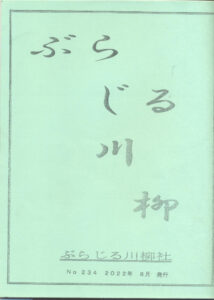 ぶらじる川柳
ぶらじる川柳社
No 234 2022年 8月 発行